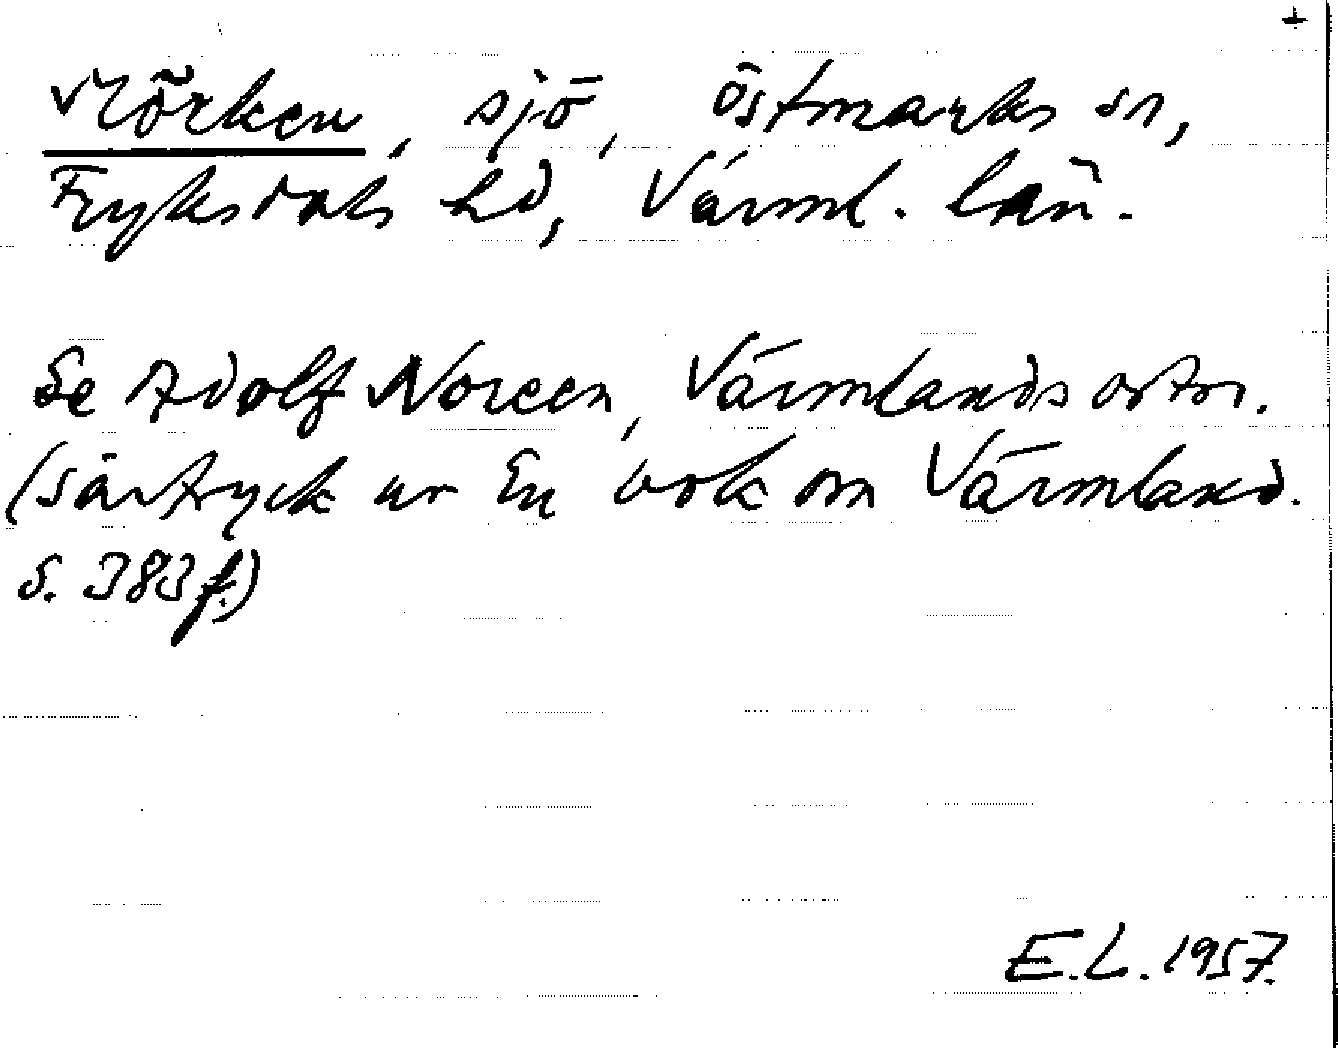 +
Mörken, sjö, Östmarks sn,
Fryksdals hd, Värml. län.
Se Adolf Noreen, Värmlands ortn.
(särtryck ur En bok om Värmland.
S. 383 f.)
E.L. 1957.